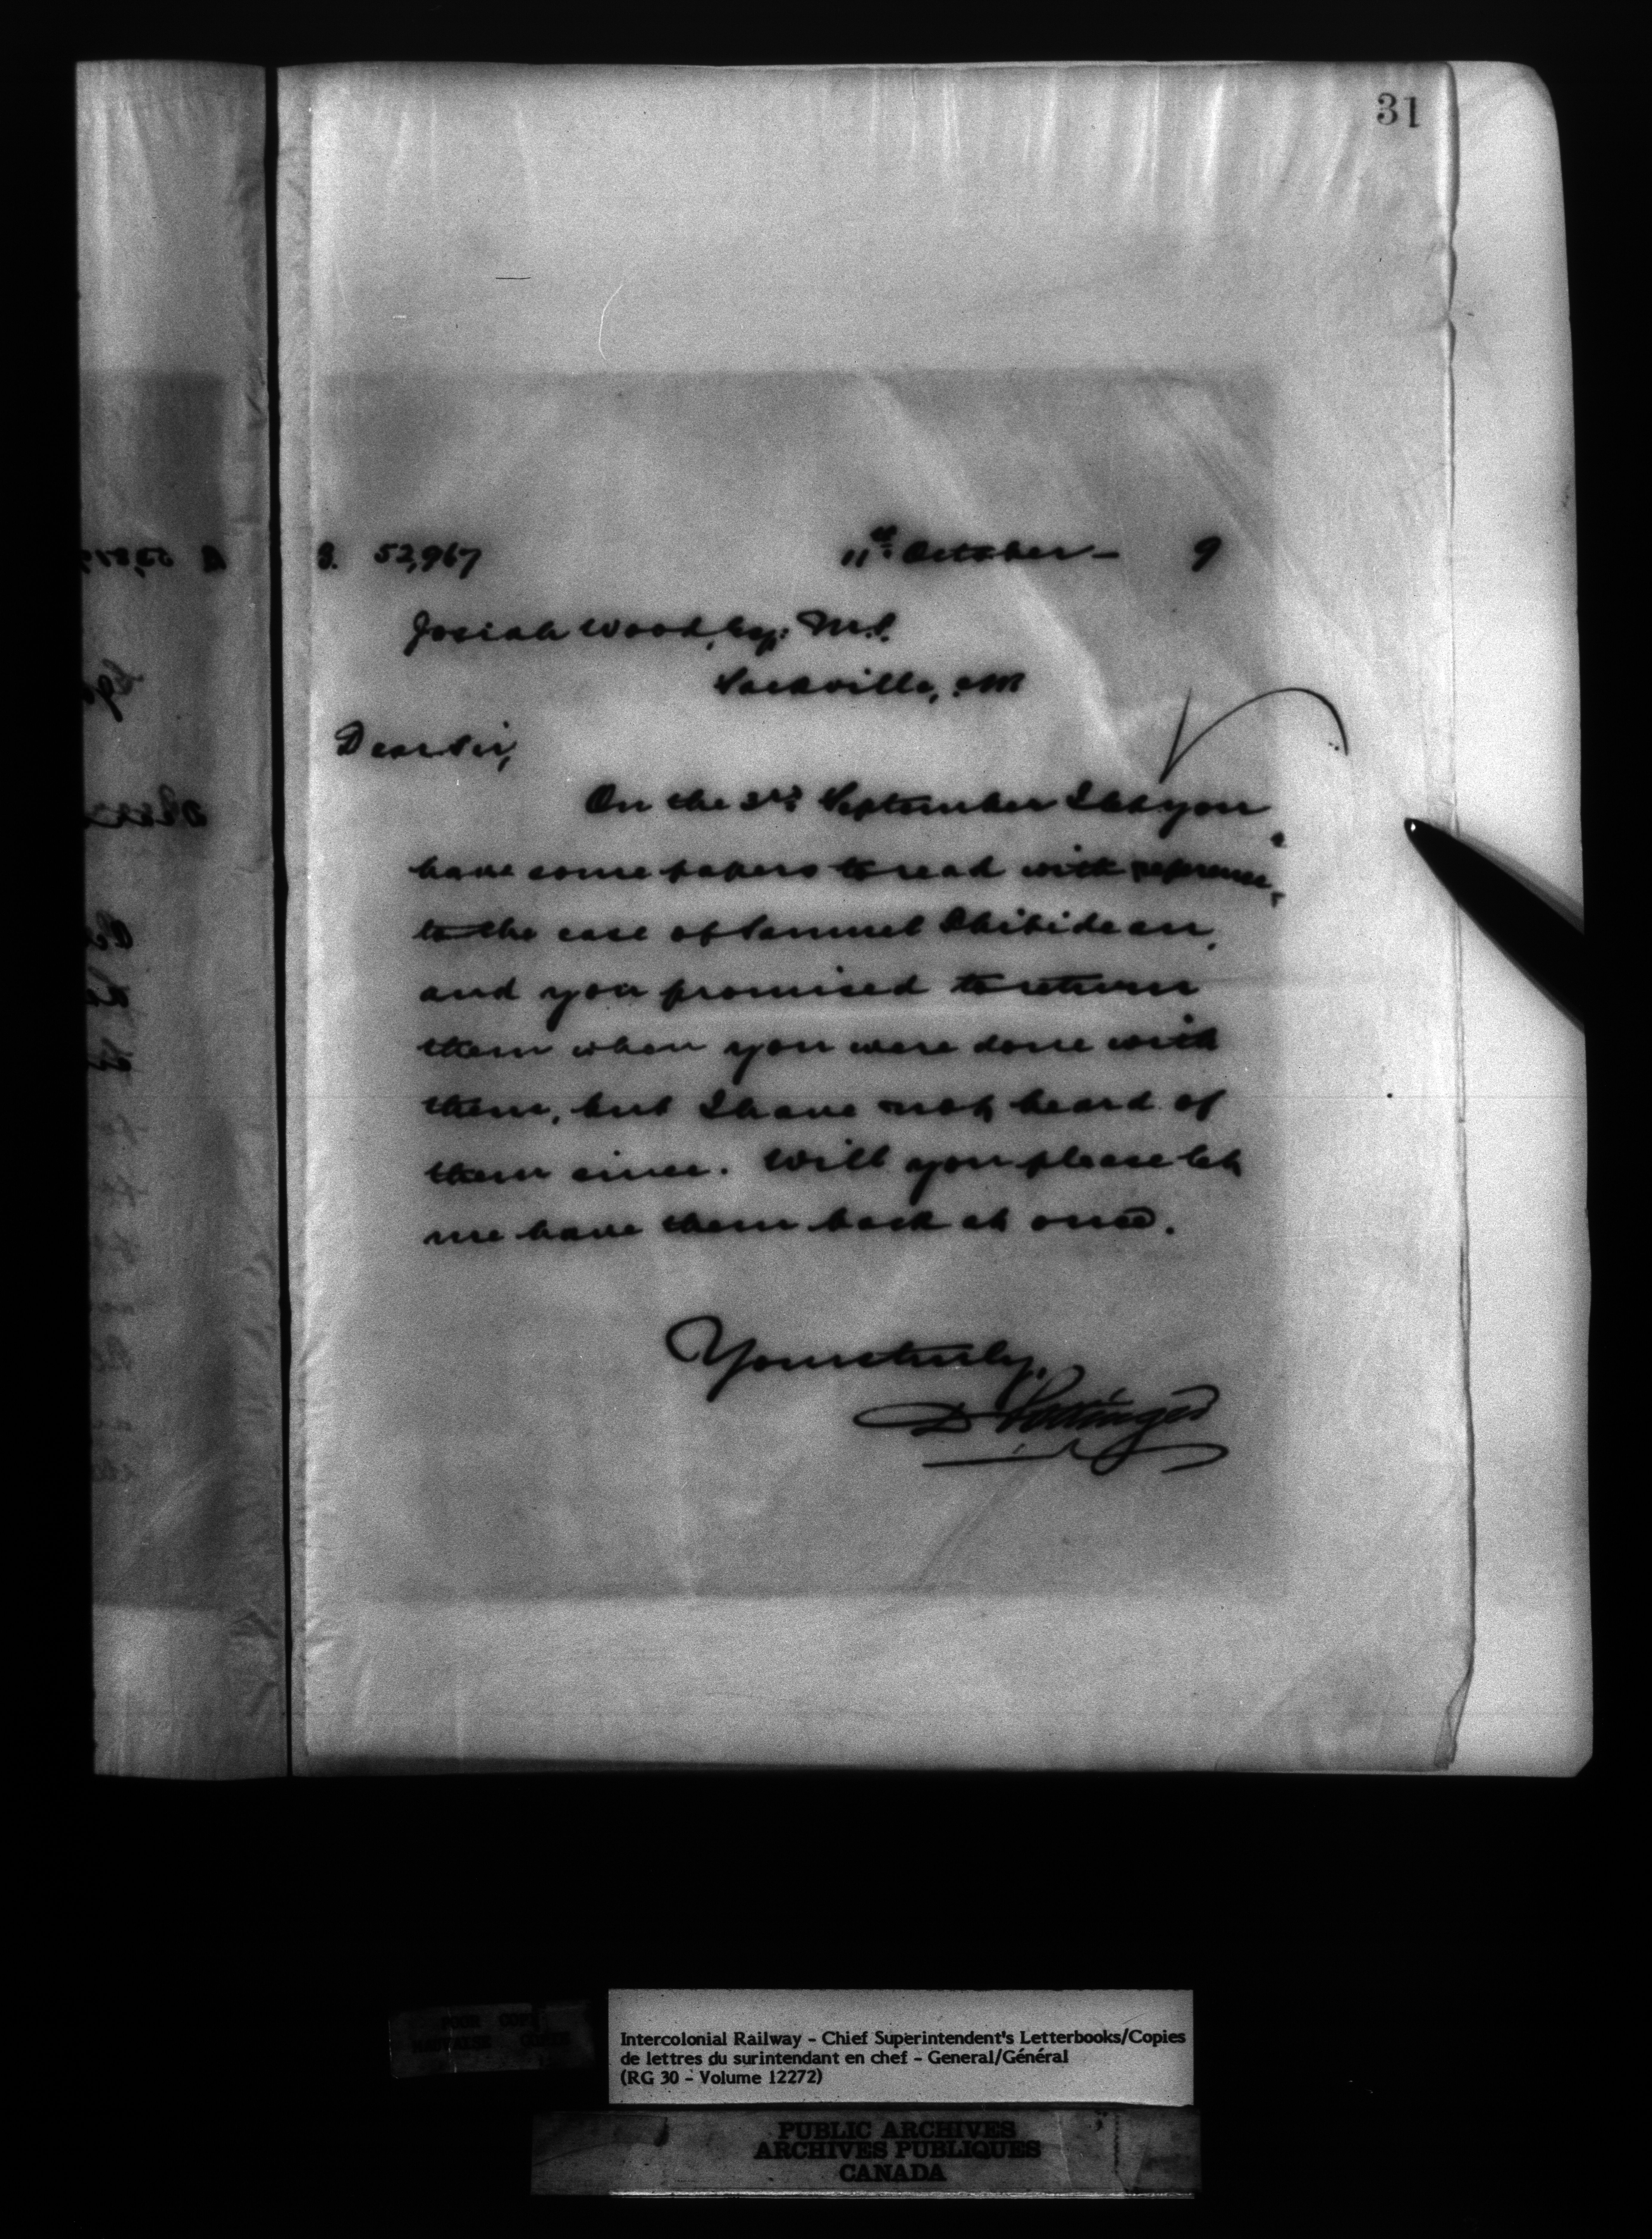 31
S. 52,967 11th October — 9
Josiah Wood, Esq: M.P.
Sackville, N.B.
Dear Sir,
On the 3rd September I let you
have some papers to read with reference
to the case of Samuel Thibideau,
and you promised to return
them when you were done with
them, but I have not heard of
them since. Will you please let
me have them back at once.
Yours truly,
D Pottinger
POOR COPY
MAUVAISE COPIE
Intercolonial Railway - Chief Superintendent's Letterbooks/Copies
de lettres du surintendant en chef - General/Général
(RG 30 - Volume 12272)
PUBLIC ARCHIVES
ARCHIVES PUBLIQUES
CANADA